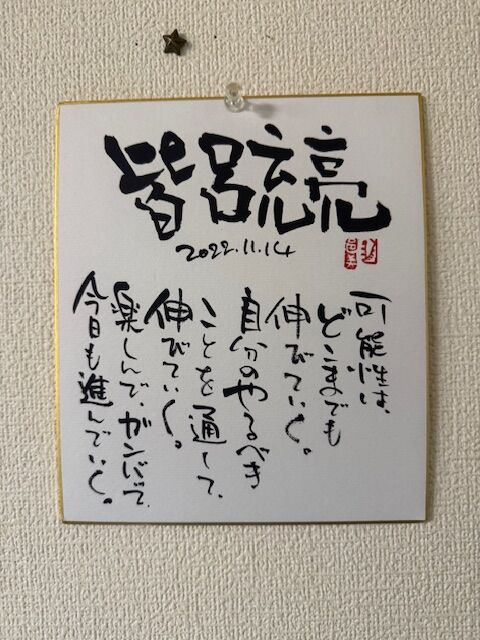 皆呂 亮
2022.11.14
可能性は、
どこまでも
伸びていく。
自分のやるべき
ことを通して、
伸びていく。
楽しんで、ガンバって、
今日も進んでいく。